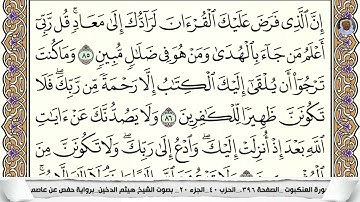 إِنَّ ٱلَّذِى فَرَضَ عَلَيْكَ ٱلْقُرْءَانَ لَرَآدُّكَ إِلَىٰ مَعَادٍۢ ۚ قُل رَّبِّىٓ
أَعْلَمُ مَن جَآءَ بِٱلْهُدَىٰ وَمَنْ هُوَ فِى ضَلَٰلٍۢ مُّبِينٍۢ ٨٥ وَمَا كُنتَ
تَرْجُوٓا۟ أَن يُلْقَىٰٓ إِلَيْكَ ٱلْكِتَٰبُ إِلَّا رَحْمَةًۭ مِّن رَّبِّكَ ۖ فَلَا
تَكُونَنَّ ظَهِيرًۭا لِّلْكَٰفِرِينَ ٨٦ وَلَا يَصُدُّنَّكَ عَنْ ءَايَٰتِ
ٱللَّهِ بَعْدَ إِذْ أُنزِلَتْ إِلَيْكَ ۖ وَٱدْعُ إِلَىٰ رَبِّكَ ۖ وَلَا تَكُونَنَّ مِنَ
ورة العنكبوت _الصفحة ٣٩٦_ الحزب ٤٠_ الجزء ٢٠ _ بصوت الشيخ هيثم الدخين_ برواية حفص عن عاصم